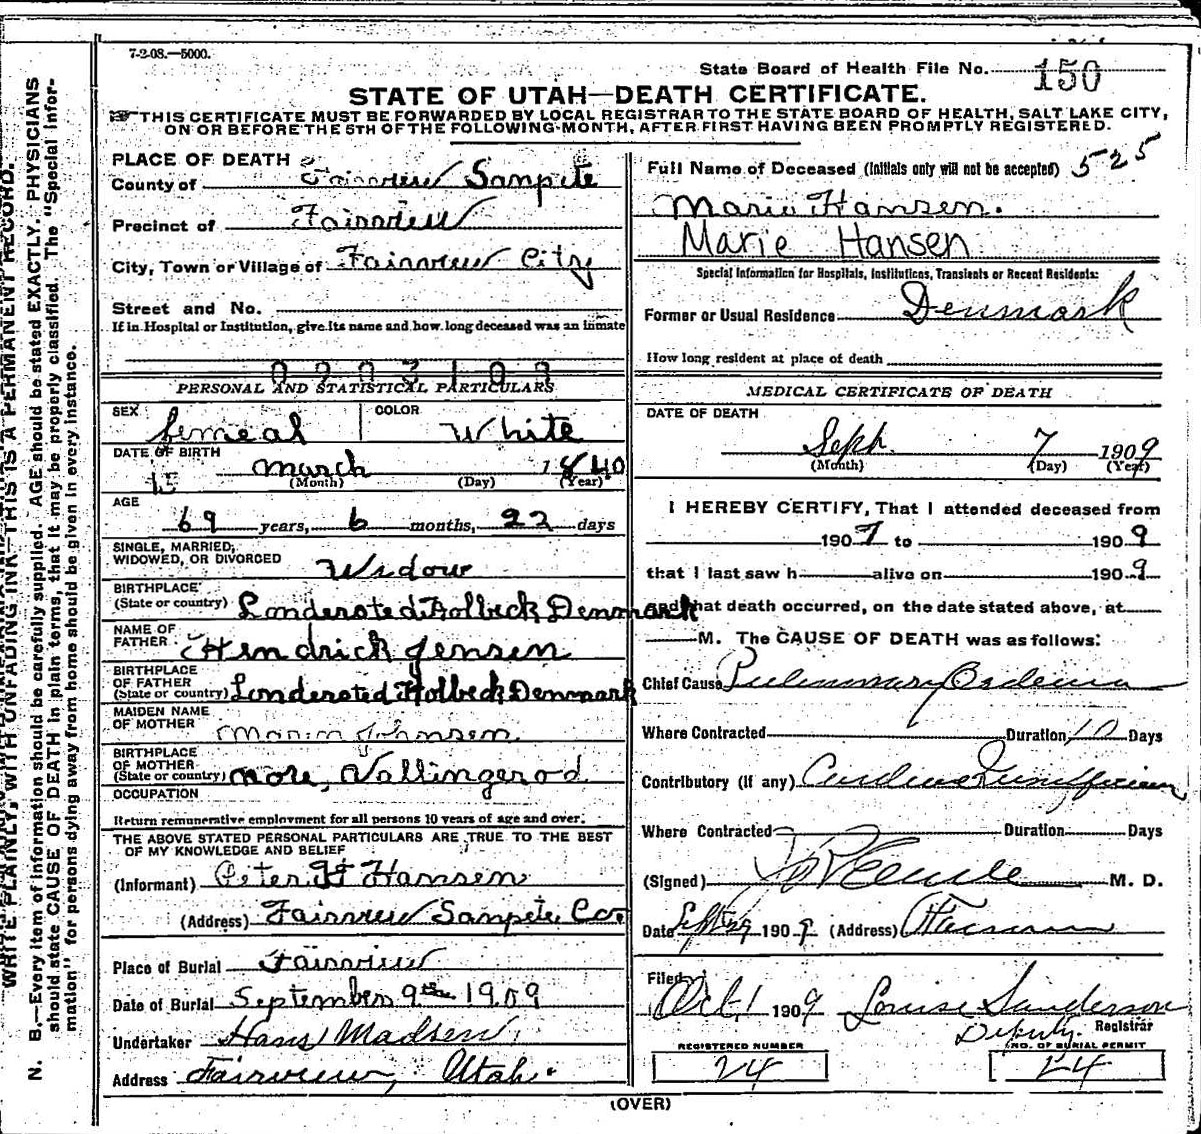 7-2-08.—5000.
State Board of Health File No. 150
STATE OF UTAH—DEATH CERTIFICATE.
THIS CERTIFICATE MUST BE FORWARDED BY LOCAL REGISTRAR TO THE STATE BOARD OF HEALTH, SALT LAKE CITY,
ON OR BEFORE THE 5TH OF THE FOLLOWING MONTH, AFTER FIRST HAVING BEEN PROMPTLY REGISTERED.
WRITE PLAINLY, WITH UNFADING INK—THIS IS A PERMANENT RECORD.
N. B.—Every item of information should be carefully supplied. AGE should be stated EXACTLY. PHYSICIANS
should state CAUSE OF DEATH in plain terms, that it may be properly classified. The "Special Infor-
mation" for persons dying away from home should be given in every instance.
PLACE OF DEATH
County of Fairview Sanpete
Precinct of Fairview
City, Town or Village of Fairview City
Street and No.
If in Hospital or Institution, give its name and how long deceased was an inmate
PERSONAL AND STATISTICAL PARTICULARS
SEX femeal COLOR White
DATE OF BIRTH
15 march 1840
(Month) (Day) (Year)
AGE
69 years, 6 months, 22 days
SINGLE, MARRIED,
WIDOWED, OR DIVORCED Widow
BIRTHPLACE
(State or country) Londersted Holbeck Denmark
NAME OF
FATHER Hendrick Jensen
BIRTHPLACE
OF FATHER
(State or country) Londersted Holbeck Denmark
MAIDEN NAME
OF MOTHER Maren Johnsen.
BIRTHPLACE
OF MOTHER
(State or country) nore, Vallingerod
OCCUPATION
Return remunerative employment for all persons 10 years of age and over.
THE ABOVE STATED PERSONAL PARTICULARS ARE TRUE TO THE BEST
OF MY KNOWLEDGE AND BELIEF
(Informant) Peter H Hansen
(Address) Fairview Sanpete Co.
Place of Burial Fairview
Date of Burial September 9th 1909
Undertaker Hans Madsen
Address Fairview, Utah.
Full Name of Deceased (Initials only will not be accepted) 525
Marie Hansen.
Marie Hansen
Special Information for Hospitals, Institutions, Transients or Recent Residents:
Former or Usual Residence Denmark
How long resident at place of death
MEDICAL CERTIFICATE OF DEATH
DATE OF DEATH
Seph. 7 1909
(Month) (Day) (Year)
I HEREBY CERTIFY, That I attended deceased from
1907 to 1909
that I last saw h alive on 1909
and that death occurred, on the date stated above, at
M. The CAUSE OF DEATH was as follows:
Chief Cause Pulmonary Oedema
Where Contracted Duration 10 Days
Contributory (if any) Cardiac Insufficiency
Where Contracted Duration Days
(Signed) M. D.
Date 1909 (Address)
Filed
Oct 1 1909 Louise Sanderson
Deputy Registrar
REGISTERED NUMBER NO. OF BURIAL PERMIT
24 24
(OVER)